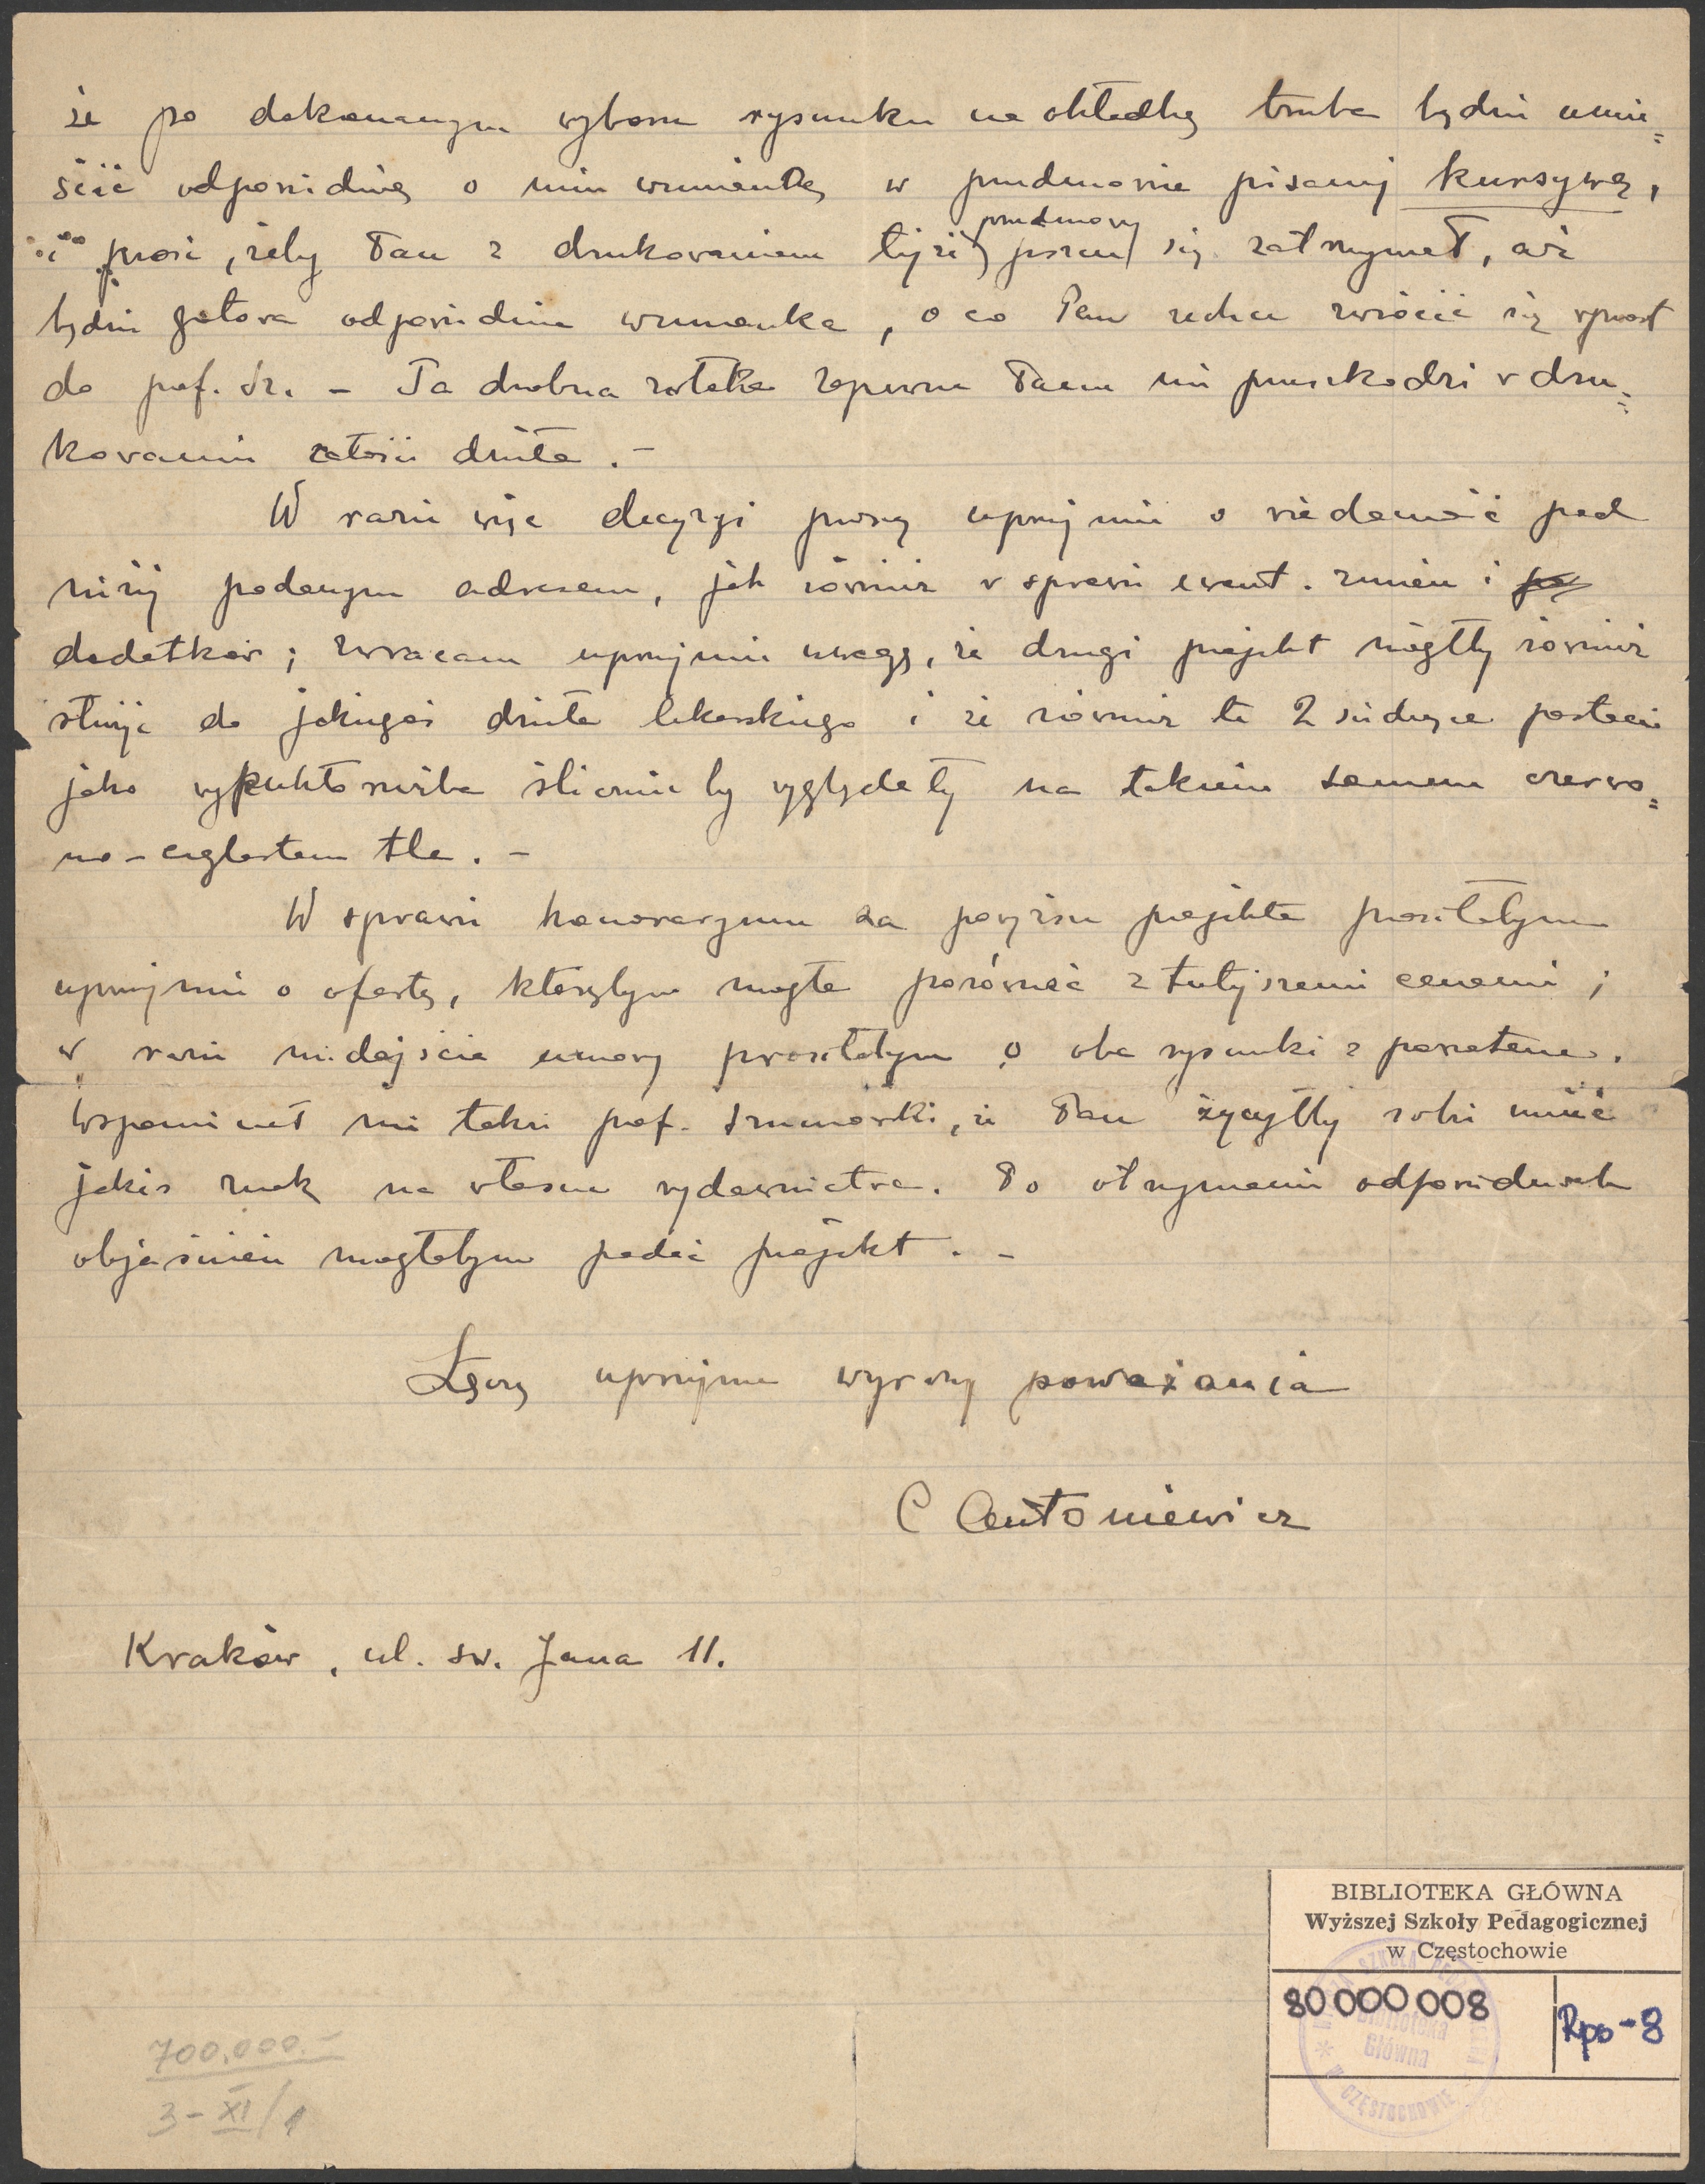 że po dokonanym wyborze rysunku na okładkę trzeba będzie umie=
ścić odpowiednię o nim wzmiankę w przedmowie pisanej kursywą,
i prosi, żeby Pan z drukowaniem tejże przedmowy się zatrzymał, aż
będzie gotowa odpowiednia wzmianka, o co Pan zechce zwrócić się wprost
do prof. Sz. – Ta drobna zwłoka zapewne Panu nie przeszkodzi w dru=
kowaniu całości dzieła. –
W razie więc decyzyi proszę uprzejmie o wiadomość pod
niżej podanym adresem, jak również w sprawie ewent. zmian i
dodatków; zwracam uprzejmie uwagę, że drugi projekt mógłby również
służyć do jakiegoś dzieła lekarskiego i że również te 2 siedzące postacie
jako wypukłorzeźba ślicznie by wyglądały na takiem samem czerwo=
no-ceglastem tle. –
W sprawie honoraryum za powyższe projekta prosiłabym
uprzejmie o ofertę, którąbym mogła porównać z tutejszemi cenami;
w razie niedojścia umowy prosiłabym o oba rysunki z powrotem.
Wspominał mi także prof. Szumowski, że Pan życzyłby sobie mieć
jakiś znak na własne wydawnictwa. Po otrzymaniu odpowiednich
objaśnień mogłabym podać projekt. –
Łączę uprzejme wyrazy poważania
C Antoniewicz
Kraków, ul. św. Jana 11.
BIBLIOTEKA GŁÓWNA
Wyższej Szkoły Pedagogicznej
w Częstochowie
80 000 008
Rps-8
Biblioteka
Główna
W CZĘSTOCHOWIE
700.000.–
3-XI/1